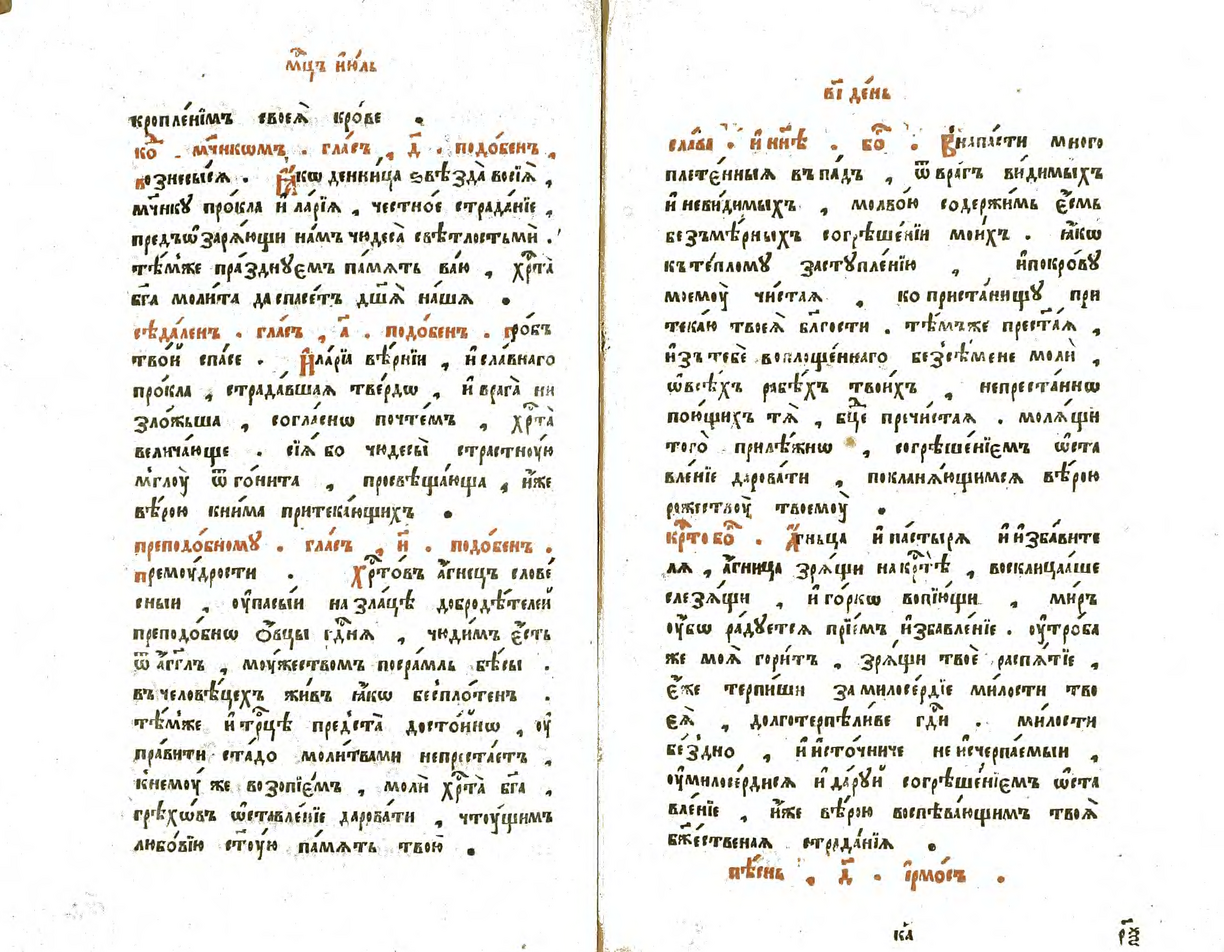 мⷭ҇цъ і҆ю́ль
кропле́нїмъ своеѧ̀ кро́ве .
ко҇ . мч҃нкѡмъ . гла́съ , д҃ . подо́бенъ ,
вознесы́йсѧ . Ꙗ҆́кѡ денни́ца ѕвѣзда̀ восїѧ̀ ,
мч҃нику про́кла и҆ ла́рїѧ , честно́е страда́нїе ,
предъѡ҆зарѧ́ющи на́мъ чюдеса̀ свѣ́тлостьми .
тѣ́мже пра́зднуемъ па́мѧть ва́ю , хрⷭ҇та̀
бг҃а моли́та да спасе́тъ дш҃ѧ̀ на́шѧ .
сѣда́ленъ . гла́съ , а҃ . подо́бенъ . гро́бъ
тво́й спа́се . И҆ла́рїа вѣ́рнїи , и҆ сла́внаго
про́кла , страда́вшая тве́рдѡ , и҆ врага̀ ни
зло́жьша , согла́снѡ почте́мъ , хрⷭ҇та̀
велича́юще . сїѧ́ бо чюдесы̀ стра́стную
мглоу̀ ѿ го́нита , просвѣща́юща , и҆́же
вѣ́рою кни́ма притека́ющихъ .
преподо́бному . гла́съ , и҃ . подо́бенъ .
премоу́дрости . Хрⷭ҇то́въ а҆́гнецъ слове́
сныи , оу҆па́сыи на зла́цѣ добродѣ́телей
преподо́бнѡ ѻ҆́вцы гдⷭ҇нѧ , чюди́мъ є҆́сть
ѿ а҆́гг҃лъ , моу́жествомъ посра́мль бѣ́сы .
въ человѣ́цехъ жи́въ ꙗ҆́кѡ беспло́тенъ .
тѣ́мже и҆ трⷪ҇цѣ предста̀ досто́йнѡ , оу҆
пра́вити ста́до моли́твами непреста́етъ ,
к немоу́ же возопїе́мъ , молѝ хрⷭ҇та̀ бг҃а ,
грѣхѡ́въ ѡ҆ставле́нїе дарова́ти , чтоу́щимъ
любо́вїю ст҃оую па́мѧть твою̀ .
в҃і де́нь
сла́ва . и҆ ны́нѣ . бо҇ . В напа́сти много
плете́нныѧ въпа́дъ , ѿ вра́гъ ви́димыхъ
и҆ неви́димыхъ , молво́ю содержи́мь є҆́смь
безъмѣ́рныхъ согрѣше́нїи мои́хъ . ꙗ҆́кѡ
къ те́плому заступле́нїю , и҆ покро́ву
моемоу̀ чи́стаѧ , ко приста́нищу при
тека́ю твоеѧ̀ бл҃гости . тѣ́мъже прест҃а́ѧ ,
и҆зъ тебѐ воплоще́ннаго безсѣ́мене молѝ ,
ѡ҆ всѣ́хъ рабѣ́хъ твои́хъ , непреста́ннѡ
пою́щихъ тѧ̀ , бц҃е пречи́стаѧ . молѧ́щи
того̀ прилѣ́жнѡ , согрѣше́нїемъ ѡ҆ста
вле́нїе дарова́ти , покланѧ́ющимсѧ вѣ́рою
рожествоу̀ твоемоу̀ .
крⷭ҇то бо҇ . А҆́гньца и҆ па́стырѧ и҆ и҆зба́вите
лѧ , а҆́гница зрѧ́щи на крⷭ҇тѣ̀ , восклица́аше
слезѧ́щи , и҆ го́ркѡ вопїю́щи , ми́ръ
оу҆́бѡ ра́дуетсѧ прїе́мъ и҆збавле́нїе . оу҆тро́ба
же моѧ̀ гори́тъ , зрѧ́щи твоѐ распѧ́тїе ,
є҆́же терпи́ши за милосе́рдїе ми́лости тво
еѧ̀ , долготерпѣли́ве гдⷭ҇и . ми́лости
бе́здно , и҆ и҆сто́чниче неи҆счерпа́емыи ,
оу҆милосе́рдисѧ и҆ да́руй согрѣше́нїемъ ѡ҆ста
вле́нїе , и҆́же вѣ́рою воспѣва́ющимъ твоѧ̀
бж҃е́ственаѧ страда́нїѧ .
пѣ́снь , д҃ . і҆рмо́съ .
к҃а рѯ҃